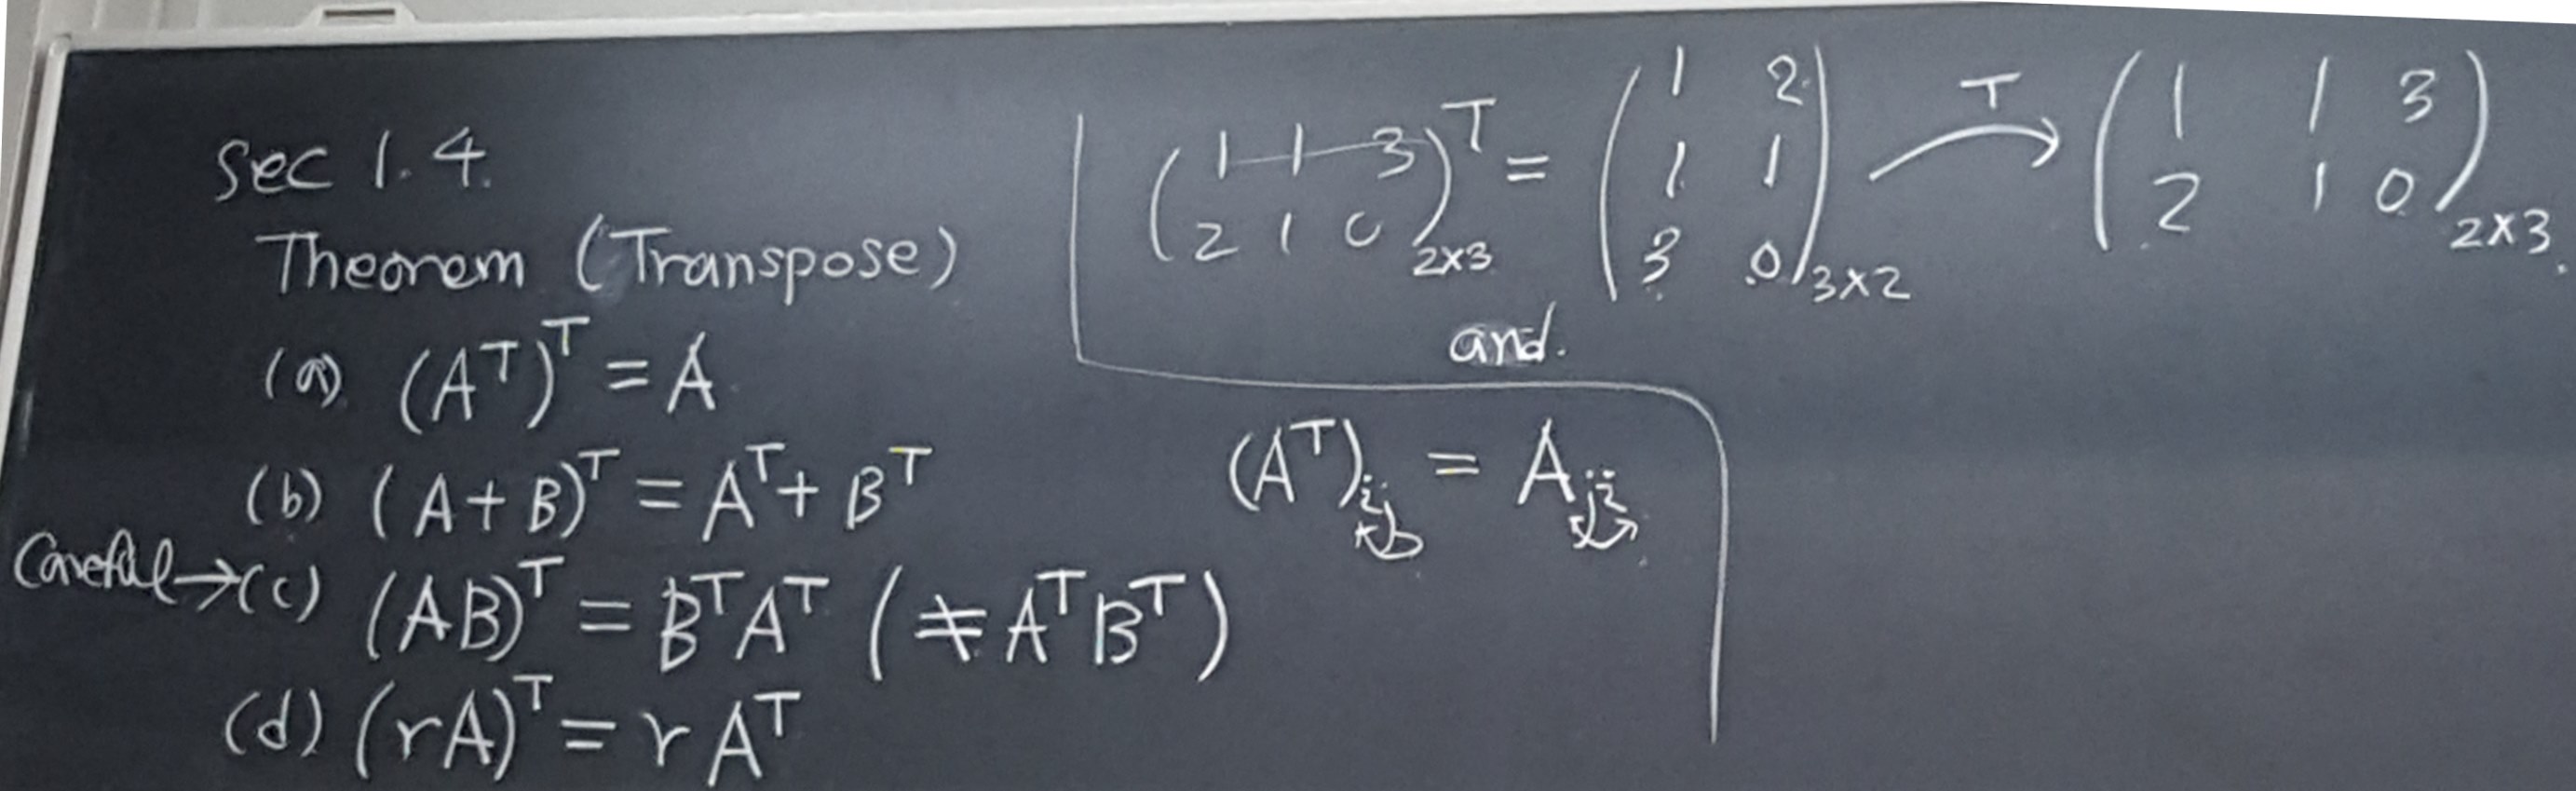 Sec 1.4.
Theorem (Transpose)
(a) (A^T)^T = A
(b) (A+B)^T = A^T + B^T
Careful → (c) (AB)^T = B^T A^T ( ≠ A^T B^T )
(d) (rA)^T = r A^T
( 1 1 3 ; 2 1 0 )^T_{2×3} = ( 1 2 ; 1 1 ; 3 0 )_{3×2} T→ ( 1 1 3 ; 2 1 0 )_{2×3}.
and.
(A^T)_{ij} = A_{ji}